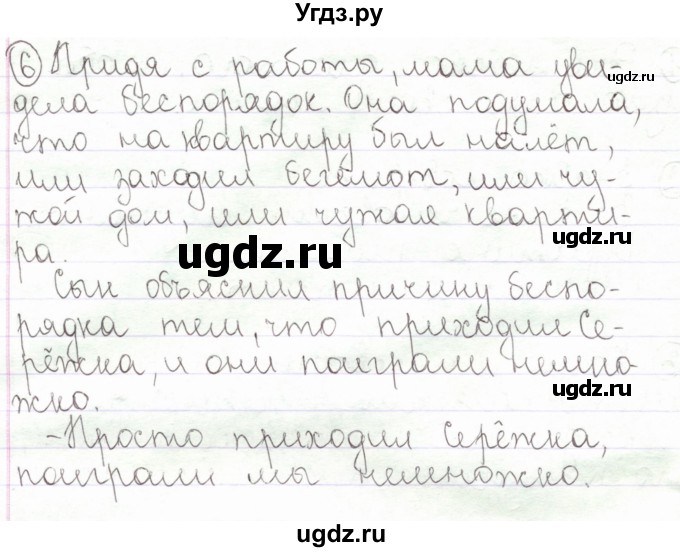 Угдз.ру
⑥ Придя с работы, мама уви-
ugdz.ru
дела беспорядок. Она подумала,
что на квартиру был налёт,
или заходил бегемот, или чу-
жой дом, или чужая кварти-
ugdz.ru
ра.
ugdz.ru
Сын объяснил причину беспо-
рядка тем, что приходил Се-
рёжка, и они поиграли немно-
ugdz.ru
жко.
- Просто приходил Серёжка,
ugdz.ru
поиграли мы немножко.
ugdz.ru